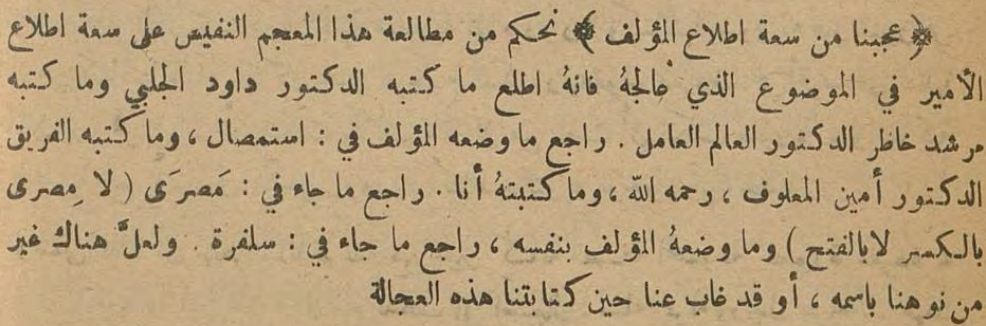 ﴿ عجبنا من سعة اطلاع المؤلف ﴾ نحكم من مطالعة هذا المعجم النفيس على سعة اطلاع
الأمير في الموضوع الذي عالجهُ فانهُ اطلع ما كتبه الدكتور داود الجلبي وما كتبه
مرشد خاطر الدكتور العالم العامل . راجع ما وضعه المؤلف في : استمصال ، وما كتبه الفريق
الدكتور أمين المعلوف ، رحمه الله ، وما كتبتهُ أنا . راجع ما جاء في : مَصرَى ( لا مِصرى
بالكسر لا بالفتح ) وما وضعهُ المؤلف بنفسه ، راجع ما جاء في : سلفرة . ولعلَّ هناك غير
من نوهنا باسمه ، أو قد غاب عنا حين كتابتنا هذه العجالة